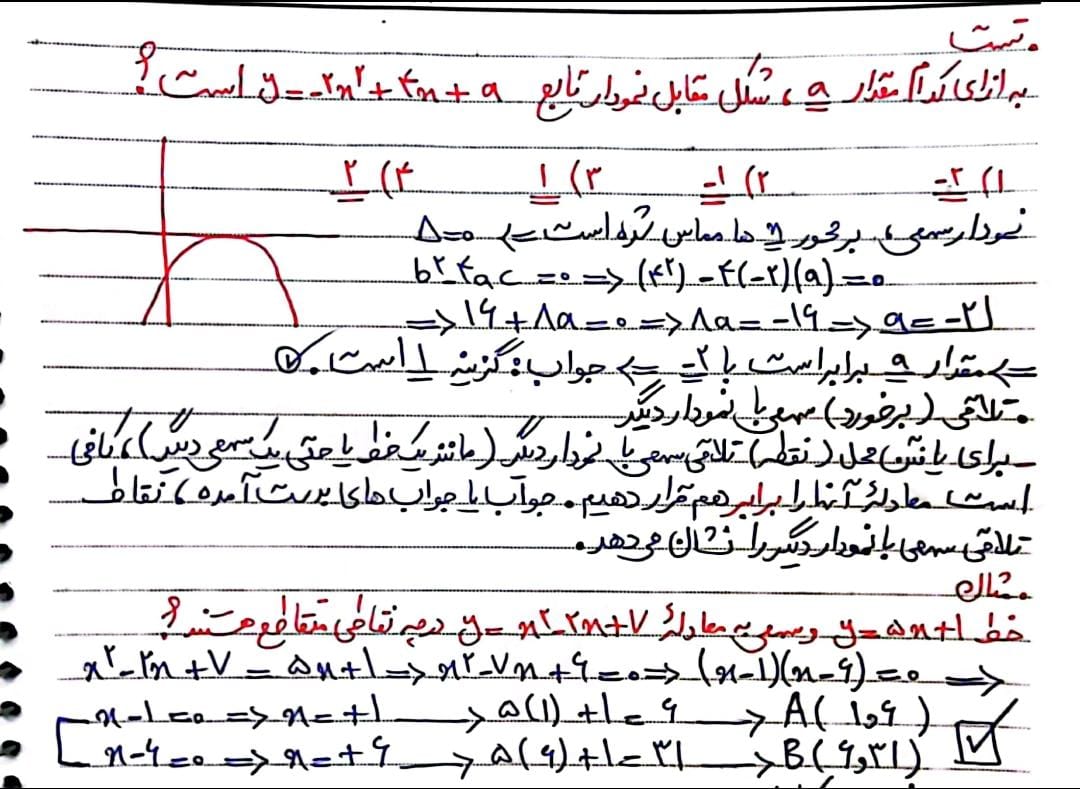 تست.
به ازای کدام مقدار a، شکل مقابل نمودار تابع y = -۲x² + ۴x + a است؟
۱) -۲ ۲) -۱ ۳) ۱ ۴) ۲
نمودار سهمی، بر محور x ها مماس شده است => Δ=۰
b² - ۴ac = ۰ => (۴²) - ۴(-۲)(a) = ۰
=> ۱۶ + ۸a = ۰ => ۸a = -۱۶ => a = -۲
=> مقدار a برابر است با -۲ => جواب: گزینه ۱ است.
تلاقی (برخورد) سهمی با نمودار دیگر.
- برای یافتن محل (نقطه) تلاقی سهمی با نمودار دیگر (مانند یک خط یا حتی یک سهمی دیگر)، کافی
است معادلهٔ آنها را برابر هم قرار دهیم. جواب یا جواب های بدست آمده، نقاط
تلاقی سهمی با نمودار دیگر را نشان می دهد.
مثال.
خط y = ۵x+۱ و سهمی به معادلهٔ y = x² - ۲x + ۷ در چه نقاطی متقاطع هستند؟
x² - ۲x + ۷ = ۵x + ۱ => x² - ۷x + ۶ = ۰ => (x-۱)(x-۶) = ۰ =>
x - ۱ = ۰ => x = +۱ → ۵(۱) + ۱ = ۶ → A(۱,۶)
x - ۶ = ۰ => x = +۶ → ۵(۶) + ۱ = ۳۱ → B(۶,۳۱)